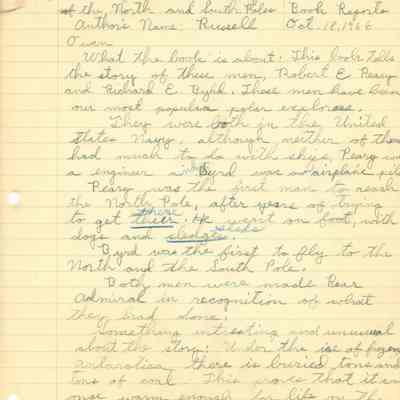 of the North and South Poles Book Reports
Author's Name: Russell Oct. 18, 1966
Owen
What the book is about: This book tells
the story of these men, Robert E Peary
and Richard E. Byrd. These men have been
our most popular polar explorers.
They were both in the United
States Navy, although neither of them
had much to do with ships, Peary was
a engineer while Byrd was an airplane pilot
Peary was the first man to reach
the North Pole, after years of trying
to get their there. He went on foot, with
dogs and sledges sleds.
Byrd was the first to fly to the
North and the South Pole.
Both men were made Rear
Admiral in recognition of what
they had done.
Something intresting and unusual
about the story: Under the ise of frozen
antarctica, there is buried tons and
tons of coal. This proves that it was
once warm enough for life in the